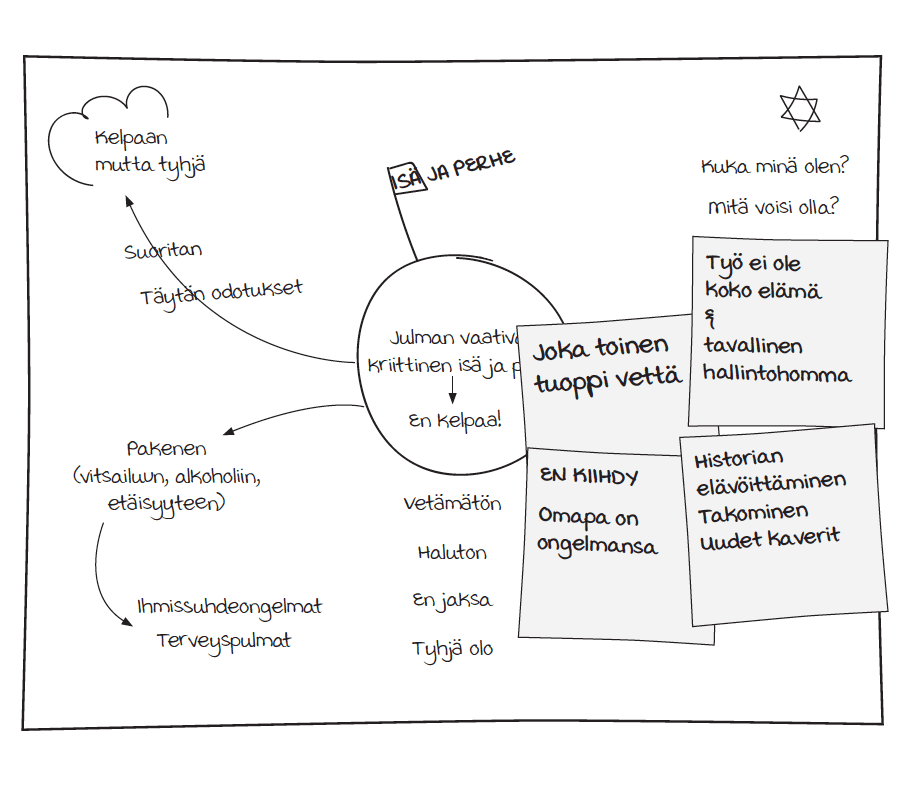 Kelpaan
mutta tyhjä
Suoritan
Täytän odotukset
ISÄ JA PERHE
Julman vaativa
kriittinen isä ja p
En kelpaa!
Pakenen
(vitsailuun, alkoholiin,
etäisyyteen)
Ihmissuhdeongelmat
Terveyspulmat
Vetämätön
Haluton
En jaksa
Tyhjä olo
Kuka minä olen?
mitä voisi olla?
Joka toinen
tuoppi vettä
Työ ei ole
koko elämä
&
tavallinen
hallintohomma
EN KIIHDY
Omapa on
ongelmansa
Historian
elävöittäminen
Takominen
Uudet kaverit